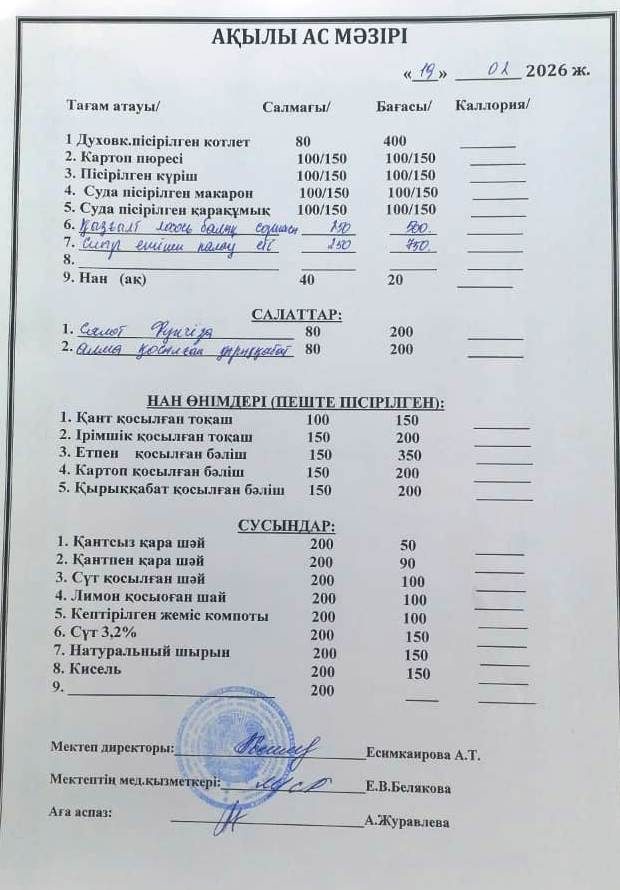 АҚЫЛЫ АС МӘЗІРІ
« 19 » 02 2026 ж.
Тағам атауы/ Салмағы/ Бағасы/ Каллория/
1 Духовк.пісірілген котлет 80 400
2. Картоп пюресі 100/150 100/150
3. Пісірілген күріш 100/150 100/150
4. Суда пісірілген макарон 100/150 100/150
5. Суда пісірілген қарақұмық 100/150 100/150
6. балық 250 500
7. палау 250 750
8.
9. Нан (ақ) 40 20
САЛАТТАР:
1. Салат Фунчіза 80 200
2. Алма қосылған 80 200
НАН ӨНІМДЕРІ (ПЕШТЕ ПІСІРІЛГЕН):
1. Қант қосылған тоқаш 100 150
2. Ірімшік қосылған тоқаш 150 200
3. Етпен қосылған бәліш 150 350
4. Картоп қосылған бәліш 150 200
5. Қырыққабат қосылған бәліш 150 200
СУСЫНДАР:
1. Қантсыз қара шәй 200 50
2. Қантпен қара шәй 200 90
3. Сүт қосылған шәй 200 100
4. Лимон қосыоған шай 200 100
5. Кептірілген жеміс компоты 200 100
6. Сүт 3,2% 200 150
7. Натуральный шырын 200 150
8. Кисель 200 150
9. 200
Мектеп директоры: Есимкаирова А.Т.
Мектептің мед.қызметкері: Е.В.Белякова
Аға аспаз: А.Журавлева